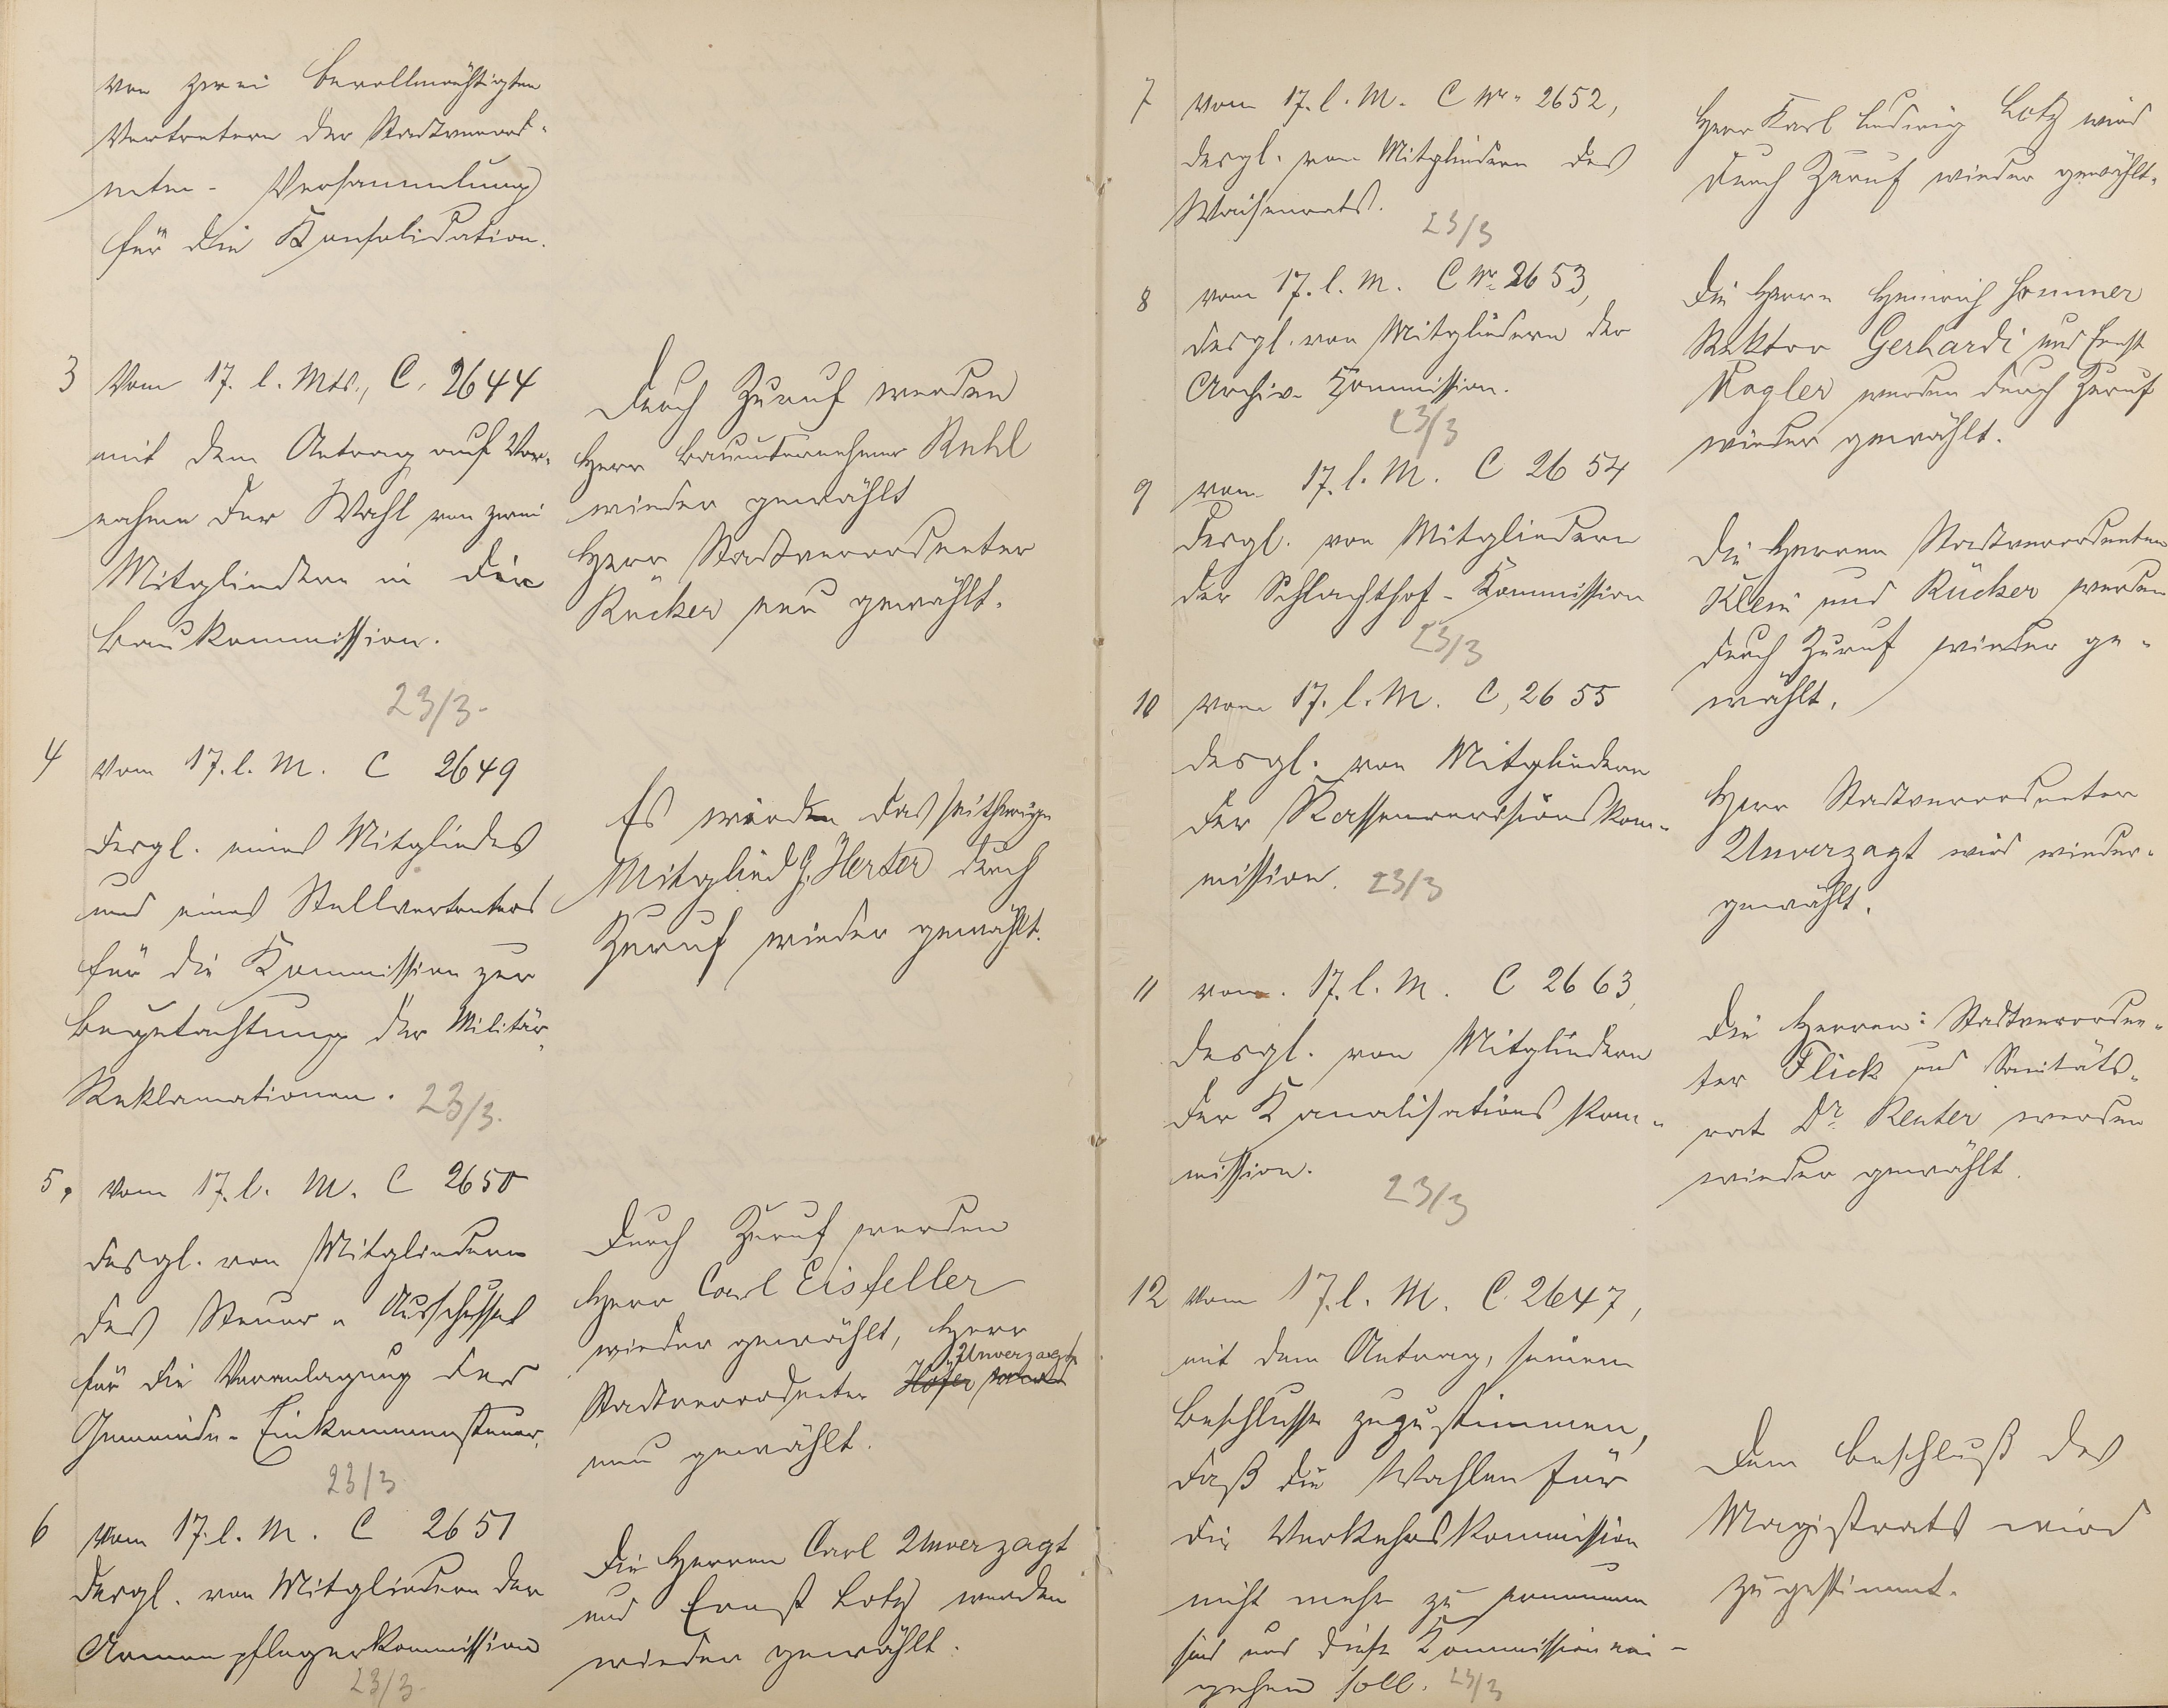 von zwei bevollmächtigten
Vertretern der Stadtverord-
neten-Versammlung
für die Konsolidation.
3 Vom 17. l. Mts., C. 2644
mit dem Antrag auf Vor-
nahme der Wahl von zwei
Mitgliedern in die
Baukommission.
23/3.
Durch Zuruf werden
Herr Bauunternehmer Ruhl
wieder gewählt
Herr Stadtverordneter
Rücker neu gewählt.
4 Vom 17. l. M. C 2649
desgl. eines Mitgliedes
und eines Stellvertreters
für die Kommission zur
Begutachtung der Militär-
Reklamationen. 23/3.
Es wurden das seitherige
Mitglied G. Herter durch
Zuruf wieder gewählt.
5. Vom 17. l. M. C 2650
desgl. von Mitgliedern
des Steuer-Ausschusses
für die Veranlagung der
Gemeinde-Einkommensteuer.
23/3
Durch Zuruf werden
Herr Carl Eisfeller
wieder gewählt, Herr
Unverzagt
Stadtverordneter Höfer
neu gewählt.
6 Vom 17. l. M. C 2651
desgl. von Mitgliedern der
Armenpflegerkommission
23/3.
Die Herren Carl Unverzagt
und Ernst Lotz werden
wieder gewählt.
7 Vom 17. l. M. C Nr. 2652,
desgl. von Mitgliedern des
Waisenrats.
23/3
Herr Karl Ludwig Lotz wird
durch Zuruf wieder gewählt.
8 vom 17. l. M. C Nr. 2653,
desgl. von Mitgliedern der
Archiv-Kommission.
23/3
Die Herrn Heinrich Sommer
Rektor Gerhardi und Ernst
Kogler werden durch Zuruf
wieder gewählt.
9 vom 17. l. M. C 2654
desgl. von Mitgliedern
der Schlachthof-Kommission
23/3
Die Herren Stadtverordneten
Klein und Rücker werden
durch Zuruf wieder ge-
wählt.
10 vom 17. l. M. C, 2655
desgl. von Mitgliedern
der Kassenrevisionskom-
mission. 23/3
Herr Stadtverordneter
Unverzagt wird wieder-
gewählt.
11 vom 17. l. M. C 2663,
desgl. von Mitgliedern
der Kanalisationskom-
mission.
23/3
Die Herren: Stadtverordne-
ter Flick und Sanitäts-
rat Dr. Reuter werden
wieder gewählt.
12 Vom 17. l. M. C. 2647,
mit dem Antrag, seinem
Beschlusse zuzustimmen,
daß die Wahlen für
die Verkehrskommission
nicht mehr zu erneuern
sind und diese Kommission ein-
gehen soll. 23/3
Dem Beschluß des
Magistrats wird
zugestimmt.